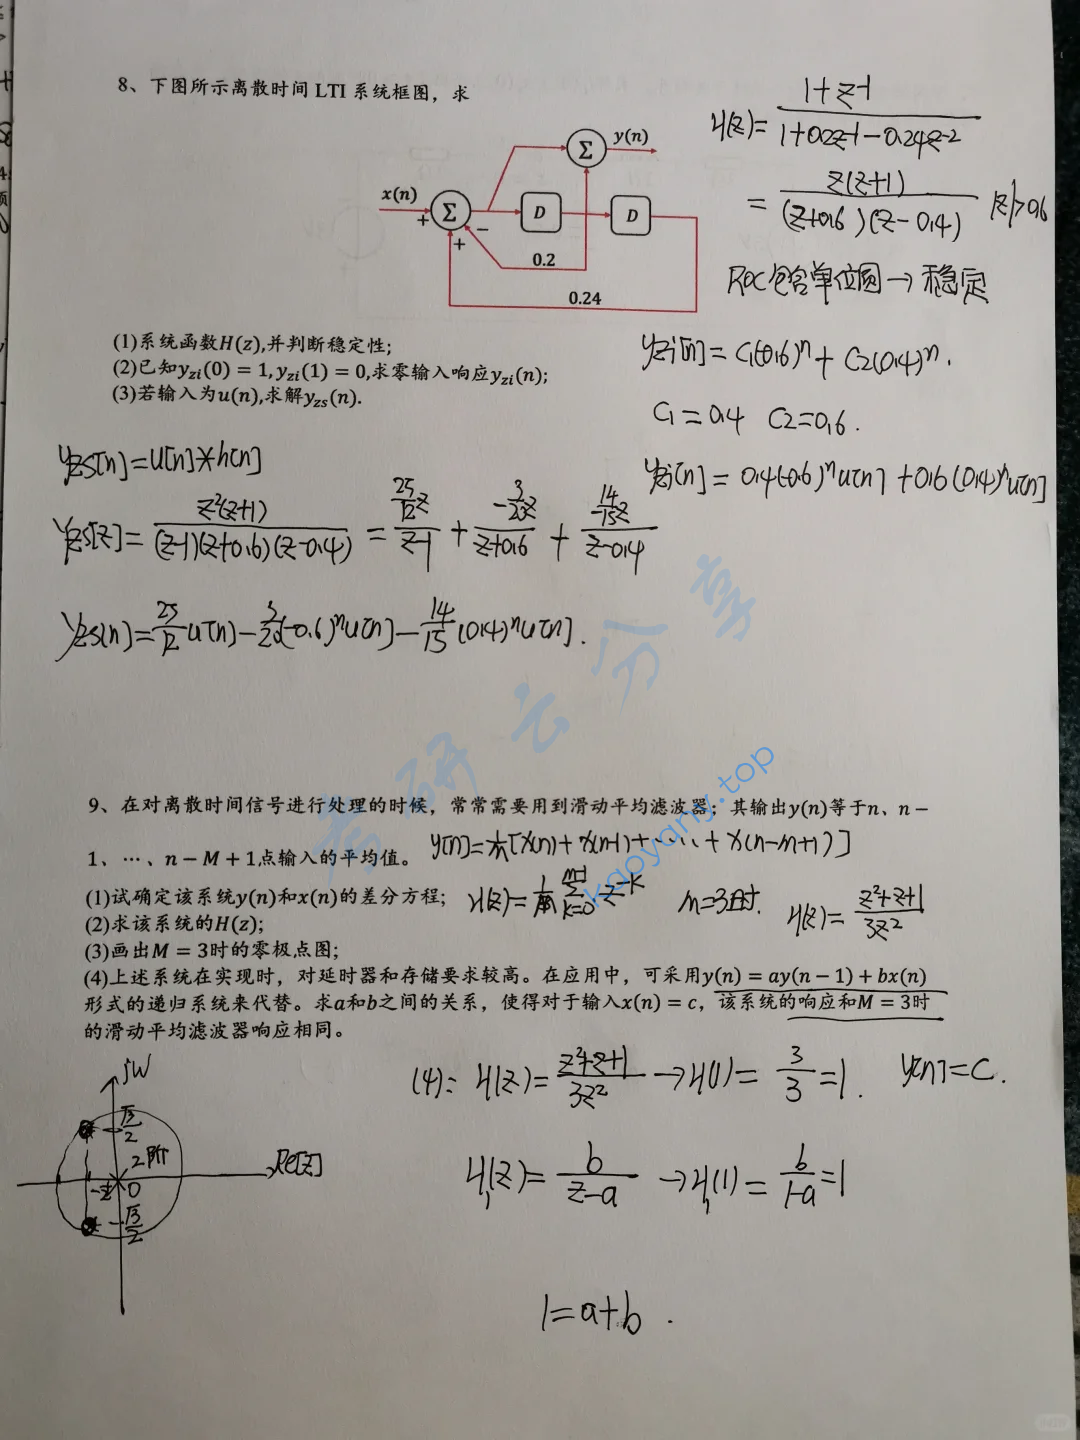 8、下图所示离散时间 LTI 系统框图，求
H(z)= (1+z-1)/(1+0.2z-1-0.24z-2)
= z(z+1)/((z+0.6)(z-0.4)) |z|>0.6
ROC包含单位圆→稳定
y(n)
Σ
x(n)
+
Σ
D
D
−
+
0.2
0.24
(1)系统函数H(z),并判断稳定性;
(2)已知yzi(0) = 1, yzi(1) = 0,求零输入响应yzi(n);
(3)若输入为u(n),求解yzs(n).
yzi[n]= C1(-0.6)^n + C2(0.4)^n.
C1=0.4 C2=0.6.
yzi[n]= 0.4(-0.6)^n u[n] +0.6(0.4)^n u[n]
yzs[n]=u[n]*h[n]
Yzs[z]= z²(z+1)/((z-1)(z+0.6)(z-0.4)) = (25/12 z)/(z-1) + (-3/20 z)/(z+0.6) + (-14/15 z)/(z-0.4)
yzs[n]= 25/12 u[n]-3/20(-0.6)^n u[n]-14/15(0.4)^n u[n].
考研云分享
kaoyany.top
9、在对离散时间信号进行处理的时候，常常需要用到滑动平均滤波器；其输出y(n)等于n、n −
1、⋯、n − M + 1点输入的平均值。
y[n]=1/m[x(n)+x(n-1)+⋯+x(n-m+1)]
(1)试确定该系统y(n)和x(n)的差分方程;
H(z)= 1/m Σ_{k=0}^{m-1} z^-k m=3时. H(z)= (z²+z+1)/(3z²)
(2)求该系统的H(z);
(3)画出M = 3时的零极点图;
(4)上述系统在实现时，对延时器和存储要求较高。在应用中，可采用y(n) = ay(n − 1) + bx(n)
形式的递归系统来代替。求a和b之间的关系，使得对于输入x(n) = c，该系统的响应和M = 3时
的滑动平均滤波器响应相同。
jw
√3/2
2阶
Re[z]
0
-√3/2
(4): H(z)= (z²+z+1)/(3z²) →H(1)= 3/3=1. y[n]=C.
H1(z)= b/(z-a) →H1(1)= b/(1-a)=1
1=a+b.